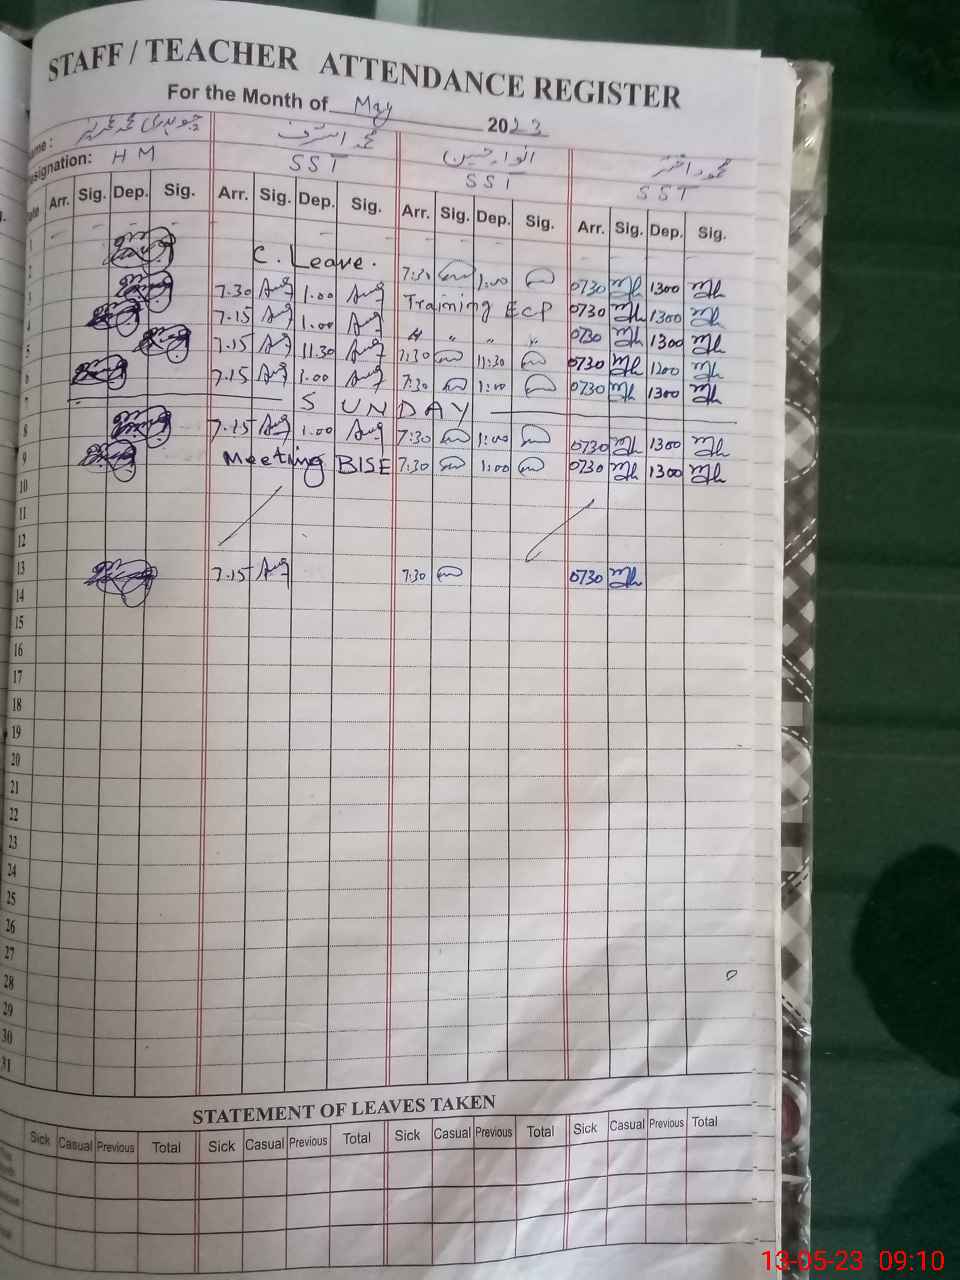 STAFF / TEACHER ATTENDANCE REGISTER
For the Month of May 2023
محمد اشرف انوار حسین محمود اختر
Designation: HM SST SST SST
Arr. Sig. Dep. Sig. Arr. Sig. Dep. Sig. Arr. Sig. Dep. Sig. Arr. Sig. Dep. Sig.
1
2 C. Leave. 7:30 1:00 0730 1300
3 7.30 1.00 Training ECP 0730 1300
4 7.15 1.00 " " " " 0730 1300
5 7.15 11.30 7:30 11:30 0730 1200
6 7.15 1.00 7:30 1:00 0730 1300
7 SUNDAY
8 7.15 1.00 7:30 1:00 0730 1300
9 Meeting BISE 7:30 1:00 0730 1300
10
11
12
13 7.15 7:30 0730
14
15
16
17
18
19
20
21
22
23
24
25
26
27
28
29
30
31
STATEMENT OF LEAVES TAKEN
Sick Casual Previous Total Sick Casual Previous Total Sick Casual Previous Total Sick Casual Previous Total
13-05-23 09:10